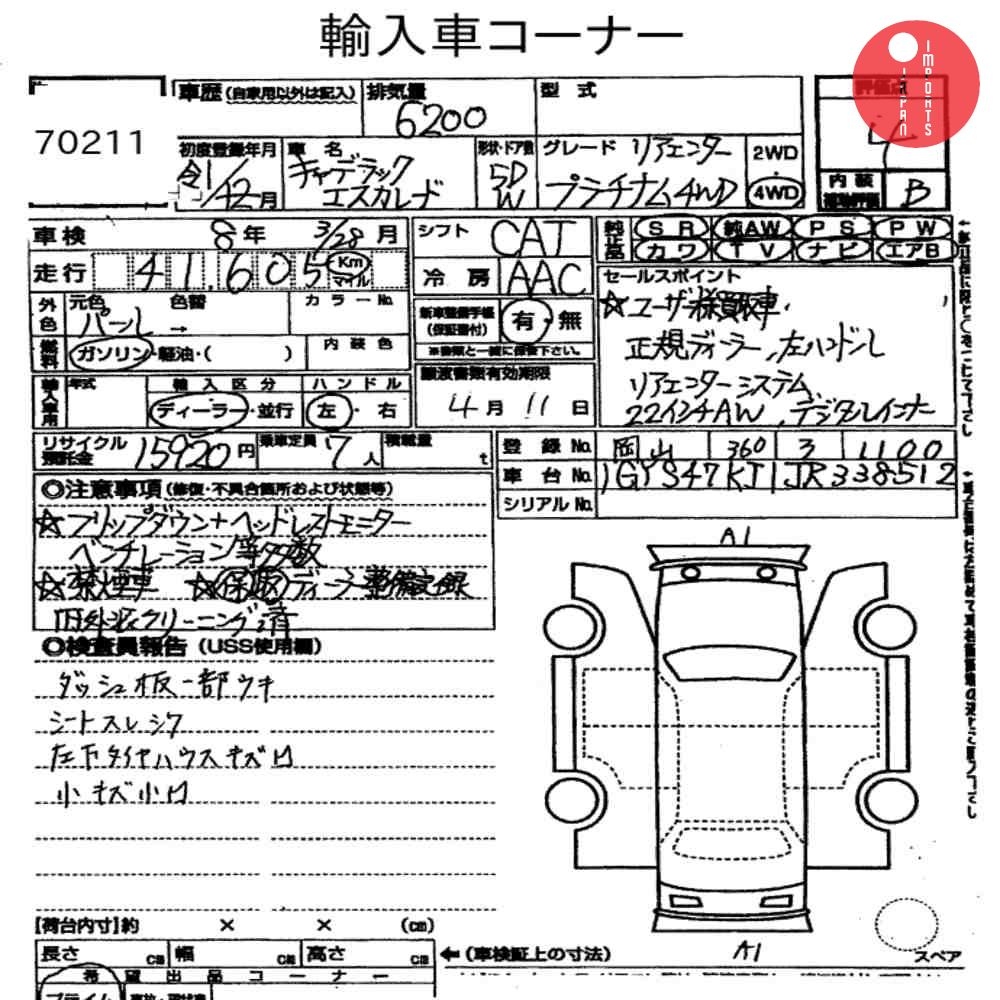 輸入車コーナー
JAPAN IMPORTS
70211
車歴 (自家用以外は記入)
排気量
6200
型 式
評価点
4
初度登録年月
令1/12月
車 名
キャデラック
エスカレード
形状・ドア数
5D
W
グレード リアエンター
プラチナム4WD
2WD
4WD
内装
B
車検 8年 3/28月
走行 41,605 Km マイル
外色 元色 パール 色替 → カラーNo.
燃料 ガソリン・軽油・( ) 内装色
輸入車用 年式 輸入区分 ディーラー・並行 ハンドル 左・右
シフト CAT
冷房 AAC
新車整備手帳
(保証書付) 有・無
※書類と一緒に保管下さい。
譲渡書類有効期限
4月 11日
純正品 SR 純AW PS PW
カワ TV ナビ エアB
セールスポイント
☆ユーザー様買取車.
正規ディーラー,左ハンドル
リアエンターシステム,
22インチAW, デジタルインナー
リサイクル預託金 15920円
乗車定員 7人
積載量 t
登録No. 岡山 360 ろ 1100
車台No. 1GYS47KJ1JR338512
シリアルNo.
◎注意事項 (修復・不具合箇所および状態等)
☆フリップダウン+ヘッドレストモニター
ベンチレーション等多数
☆禁煙車 ☆保取ディーラー整備記録
内外装クリーニング済
◎検査員報告 (USS使用欄)
ダッシュ板一部ウキ
シートスレシワ
左下タイヤハウスキズ凹
小キズ小凹
A1
A1
スペア
【荷台内寸】約 × × (cm)
長さ cm 幅 cm 高さ cm
←(車検証上の寸法)
希望出品コーナー
プライム